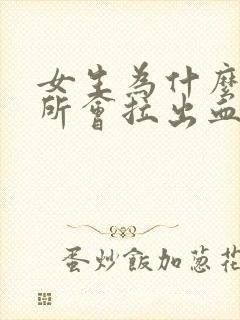 女生為什麼
所會拉出血
蛋炒飯加蔥花